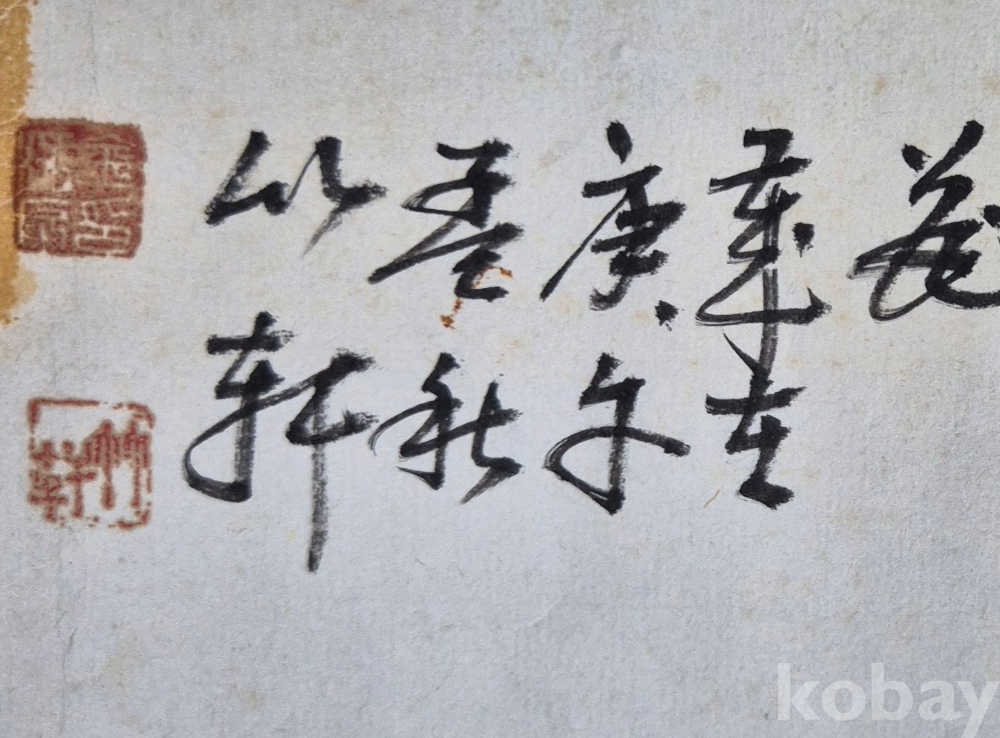 歲在
庚午
孟秋
竹軒
竹軒
kobay